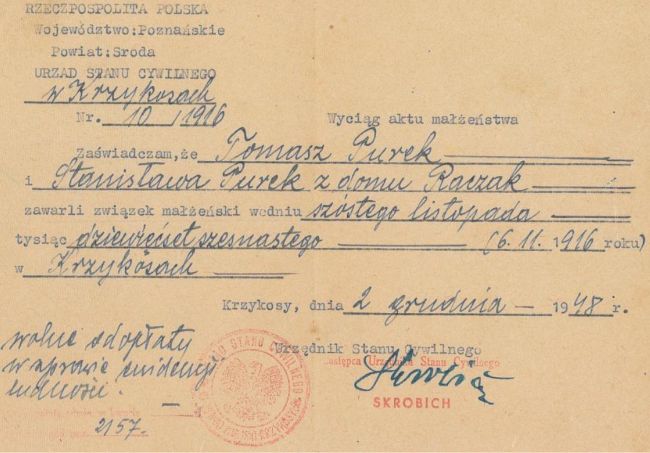 RZECZPOSPOLITA POLSKA
Województwo:Poznańskie
Powiat:Sroda
URZAD STANU CYWILNEGO
w Krzykosach
Nr. 10/1916
Wyciąg aktu małżeństwa
Zaświadczam,że Tomasz Purek
i Stanisława Purek z domu Raczak
zawarli związek małżeński wedniu szóstego listopada
tysiąc dziewięćset szesnastego (6.11.1916 roku)
w Krzykosach
Krzykosy, dnia 2 grudnia - 1948 r.
wolne od opłaty
w sprawie ewidencji
ludności.
Urzędnik Stanu Cywilnego
Zastępca Urzędnika Stanu Cywilnego
SKROBICH
STANU CYWILNEGO
2157.